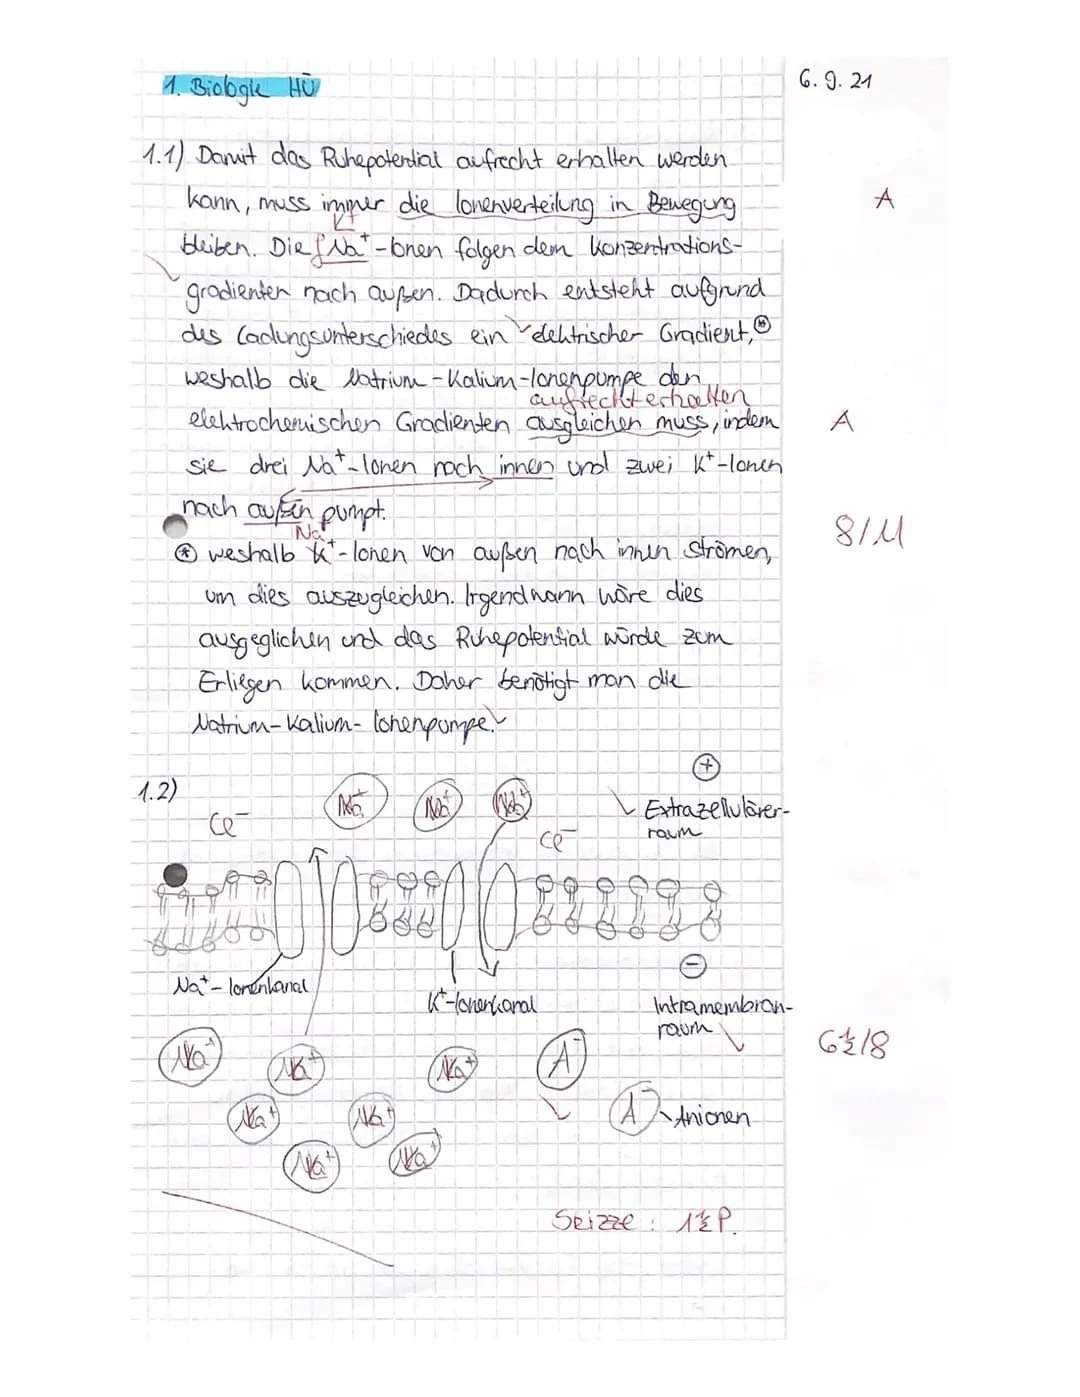 1. Biologie HÜ
6. 9. 21
1.1) Damit das Ruhepotential aufrecht erhalten werden
kann, muss immer die Ionenverteilung in Bewegung
A
K+
bleiben. Die Na+-Ionen folgen dem Konzentrations-
gradienten nach außen. Dadurch entsteht aufgrund
des Ladungsunterschiedes ein elektrischer Gradient,⊛
weshalb die Natrium-Kalium-Ionenpumpe den
aufrechterhalten
elektrochemischen Gradienten ausgleichen muss, indem
A
sie drei Na+-Ionen nach innen und zwei K+-Ionen
nach außen pumpt.
8/11
Na
⊛ weshalb K+-Ionen von außen nach innen strömen,
um dies auszugleichen. Irgendwann wäre dies
ausgeglichen und das Ruhepotential würde zum
Erliegen kommen. Daher benötigt man die
Natrium-Kalium-Ionenpumpe.
1.2)
+
Cl-
Na+
Na+
Na+
Cl-
Extrazellulärer-
raum
-
Na+-Ionenkanal
K+-Ionenkanal
Intramembran-
raum
6½/8
Na+
K+
Na+
A-
Na+
Na+
A-
Anionen
Na+
Na+
Skizze: 1½P.